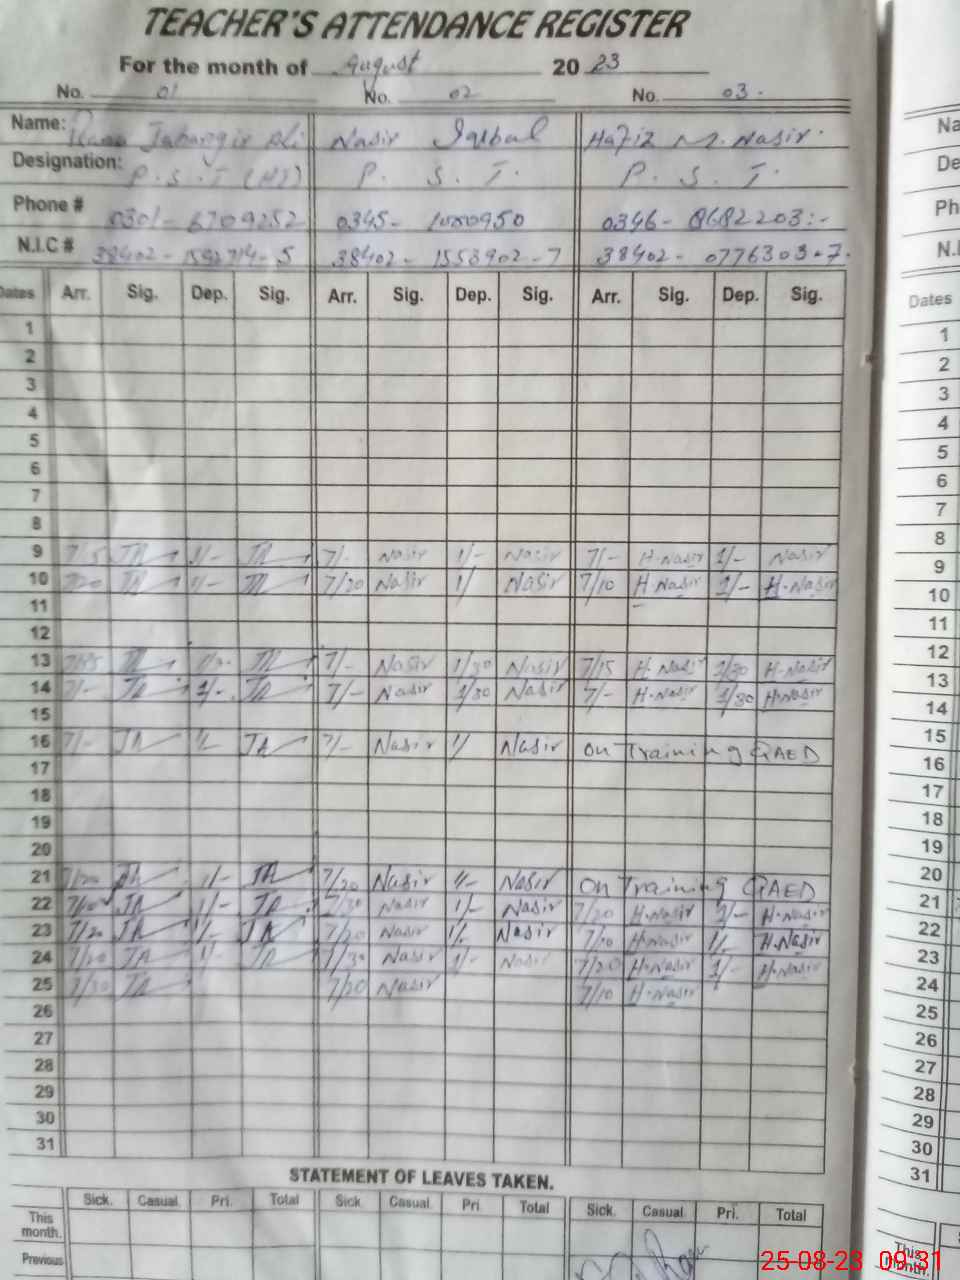 TEACHER'S ATTENDANCE REGISTER
For the month of August 2023
No. 01 No. 02 No. 03.
Name: Jahangir Ali Nasir Iqbal Hafiz M. Nasir.
Designation: P.S.T (HT) P. S. T. P. S. T.
Phone # 0301-6709252 0345- 1080950 0346- 8682203:-
N.I.C # 38402-1592714-5 38402- 1553902-7 38402- 0776303-7.
Dates Arr. Sig. Dep. Sig. Arr. Sig. Dep. Sig. Arr. Sig. Dep. Sig.
1
2
3
4
5
6
7
8
9 7/15 JA 1/- JA 7/- Nasir 1/- Nasir 7/- H-Nasir 1/- Nasir
10 7/20 JA 1/- JA 7/20 Nasir 1/ Nasir 7/10 H-Nasir 1/- H-Nasir
11
12
13 JA JA 7/- Nasir 1/30 Nasir 7/15 H-Nasir 1/30 H-Nasir
14 7/- JA 1/- JA 7/- Nasir 1/30 Nasir 7/- H-Nasir 1/30 H-Nasir
15
16 7/- JA 1/- JA 7/- Nasir 1/ Nasir on Training QAED
17
18
19
20
21 7/20 JA 1/- JA 7/20 Nasir 1/- Nasir On Training QAED
22 7/10 JA 1/- JA 7/30 Nasir 1/- Nasir 7/20 H-Nasir 1/- H-Nasir
23 7/20 JA 1/- JA 7/20 Nasir 1/- Nasir 7/10 H-Nasir 1/- H-Nasir
24 7/20 JA 1/- JA 7/30 Nasir 1/- Nasir 7/20 H-Nasir 1/- H-Nasir
25 7/30 JA 7/20 Nasir 7/10 H-Nasir
26
27
28
29
30
31
STATEMENT OF LEAVES TAKEN.
Sick. Casual Pri. Total Sick Casual Pri Total Sick. Casual Pri. Total
This month.
Previous
Na
De
Ph
N.I
Dates
1
2
3
4
5
6
7
8
9
10
11
12
13
14
15
16
17
18
19
20
21
22
23
24
25
26
27
28
29
30
31
This month.
25-08-23 09:31